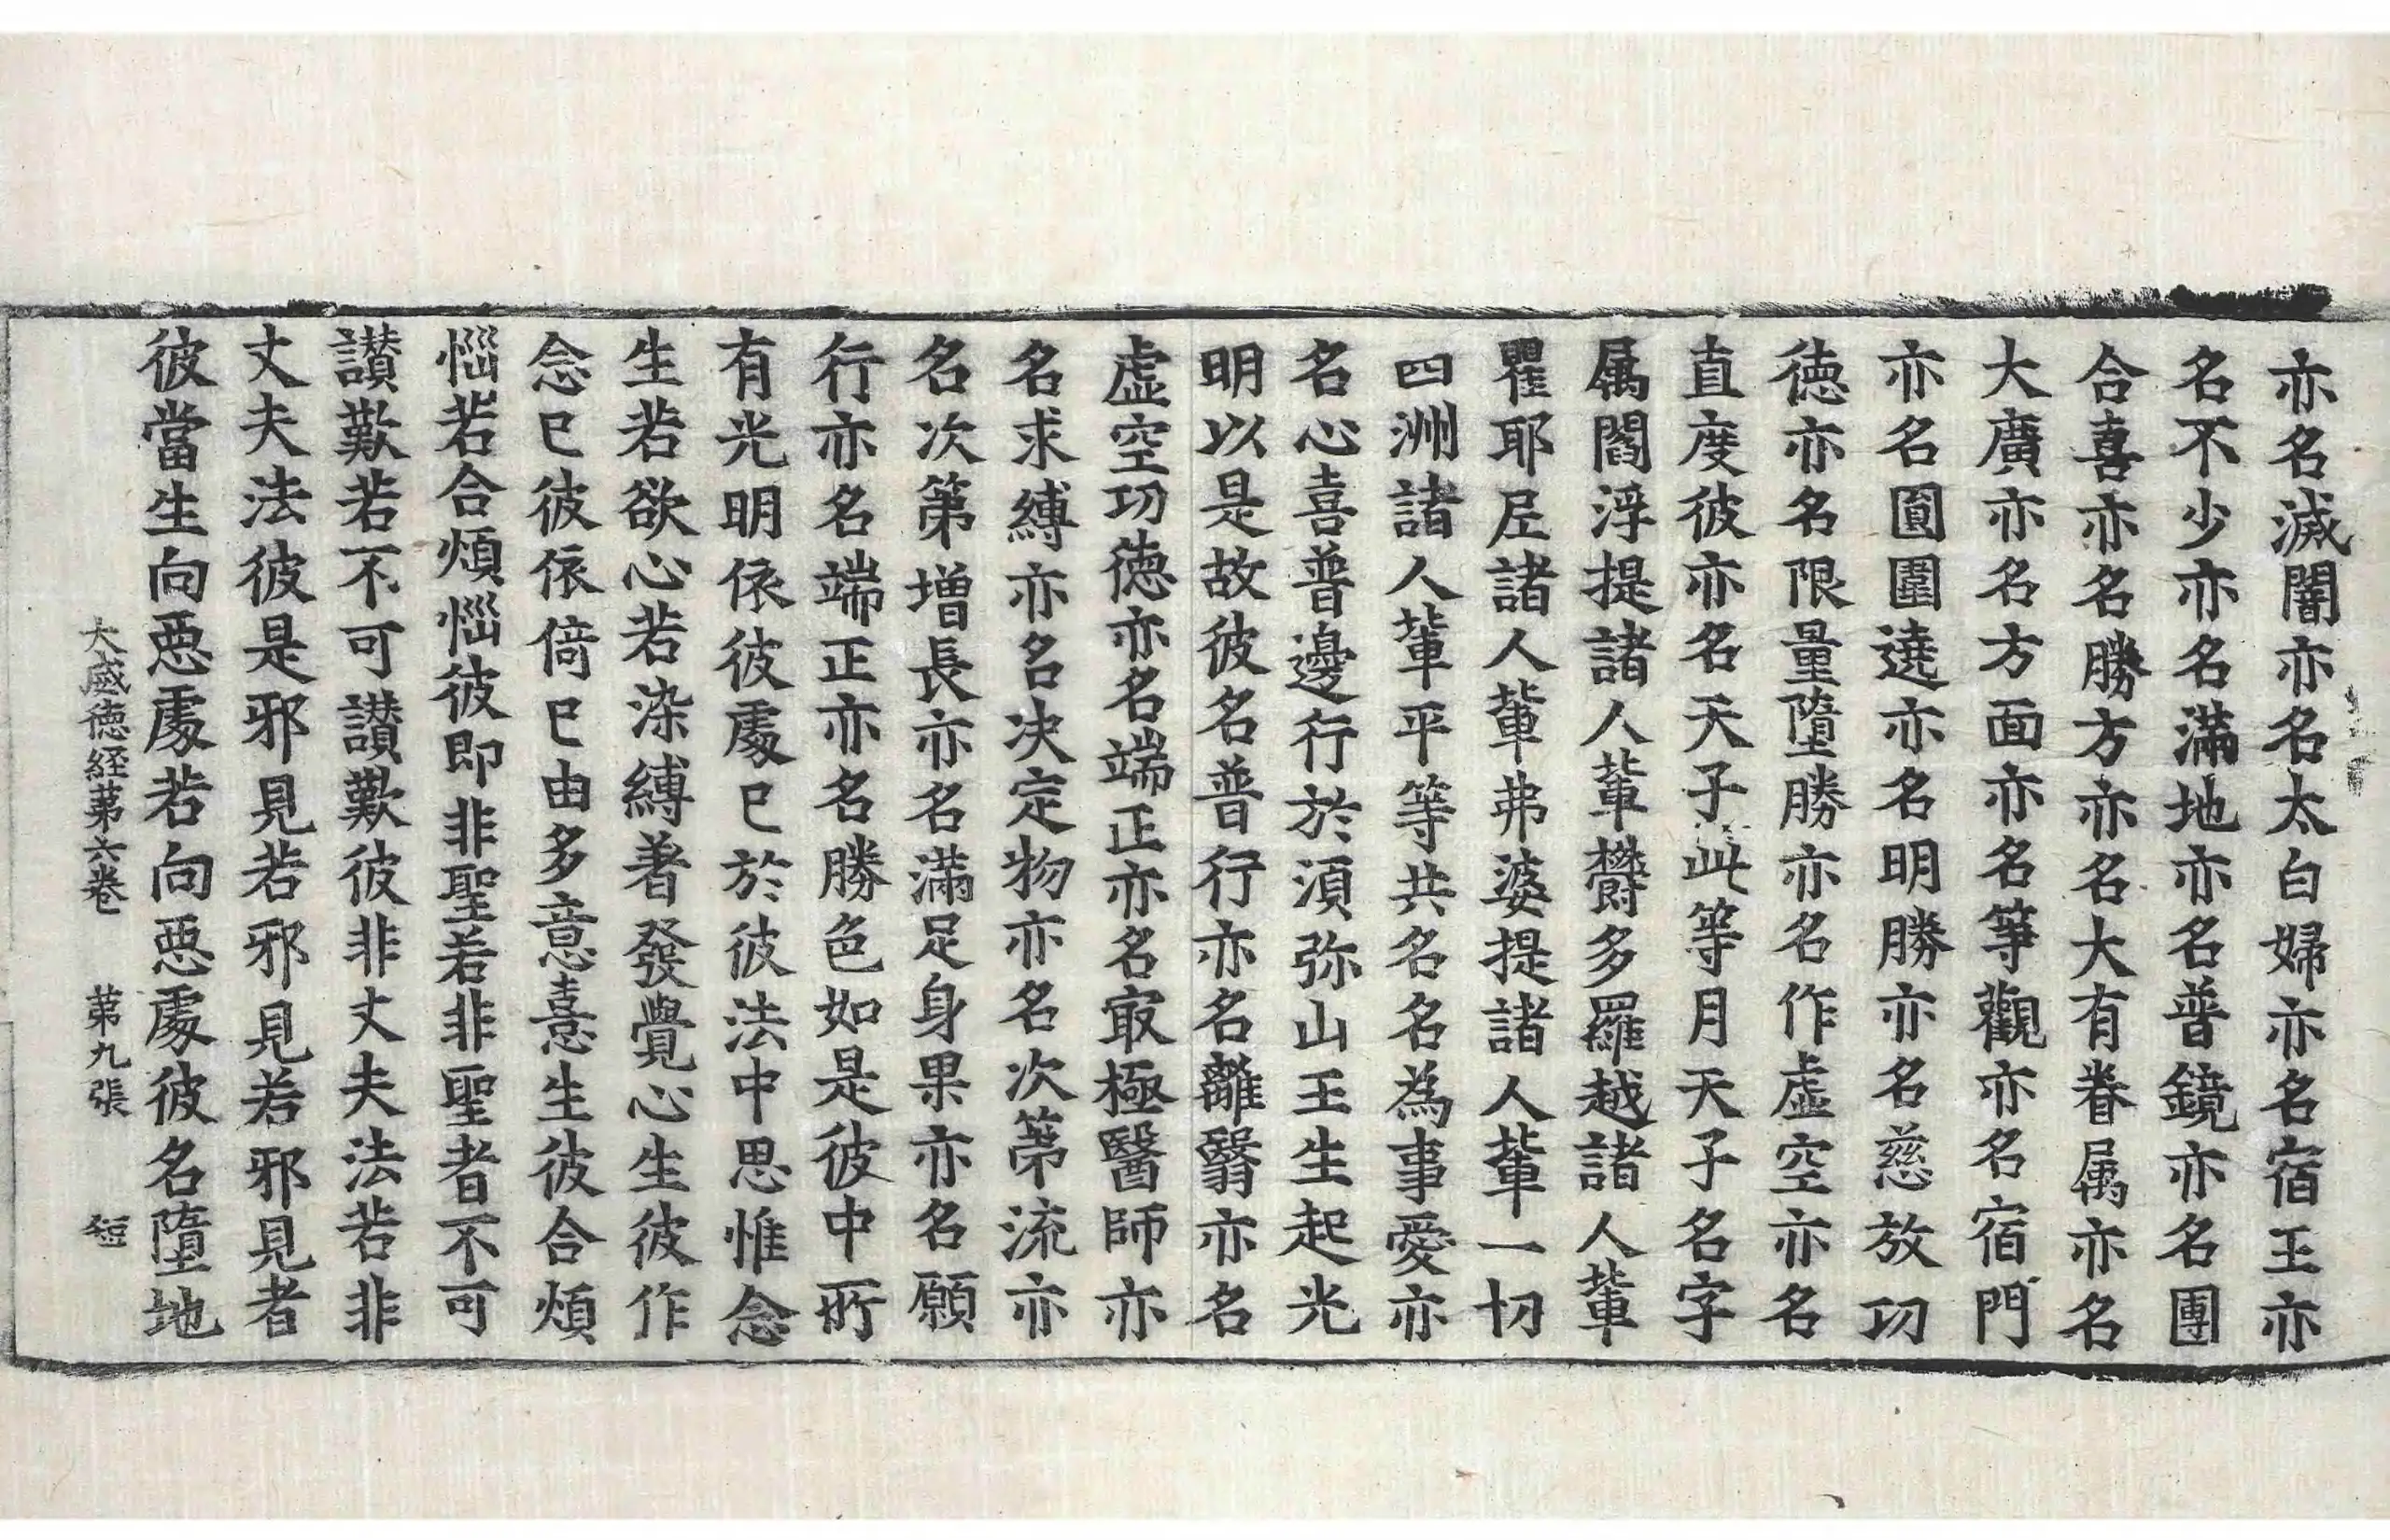 亦名滅闇亦名太白婦亦名宿王亦
名不少亦名滿地亦名普鏡亦名團
合喜亦名勝方亦名大有眷属亦名
大廣亦名方面亦名等觀亦名宿門
亦名圎圍遶亦名明勝亦名慈放功
德亦名限量墮勝亦名作虛空亦名
直度彼亦名天子此等月天子名字
属閻浮提諸人輩欝多羅越諸人輩
瞿耶𡰱諸人輩弗婆提諸人輩一切
四洲諸人輩平等共名名為事愛亦
名心喜普邊行於湏弥山王生起光
明以是故彼名普行亦名離翳亦名
虛空功德亦名端正亦名㝡極醫師亦
名求縛亦名决定物亦名次第流亦
名次第增長亦名滿足身果亦名願
行亦名端正亦名勝色如是彼中所
有光明依彼處已於彼法中思惟念
生若欲心若染縛著發覺心生彼作
念已彼依倚已由多意憙生彼合煩
惱若合煩惱彼即非聖若非聖者不可
讃歎若不可讃歎彼非丈夫法若非
丈夫法彼是邪見若邪見若邪見者
彼當生向惡處若向惡處彼名墮地
大威德経第六卷 第九張 短